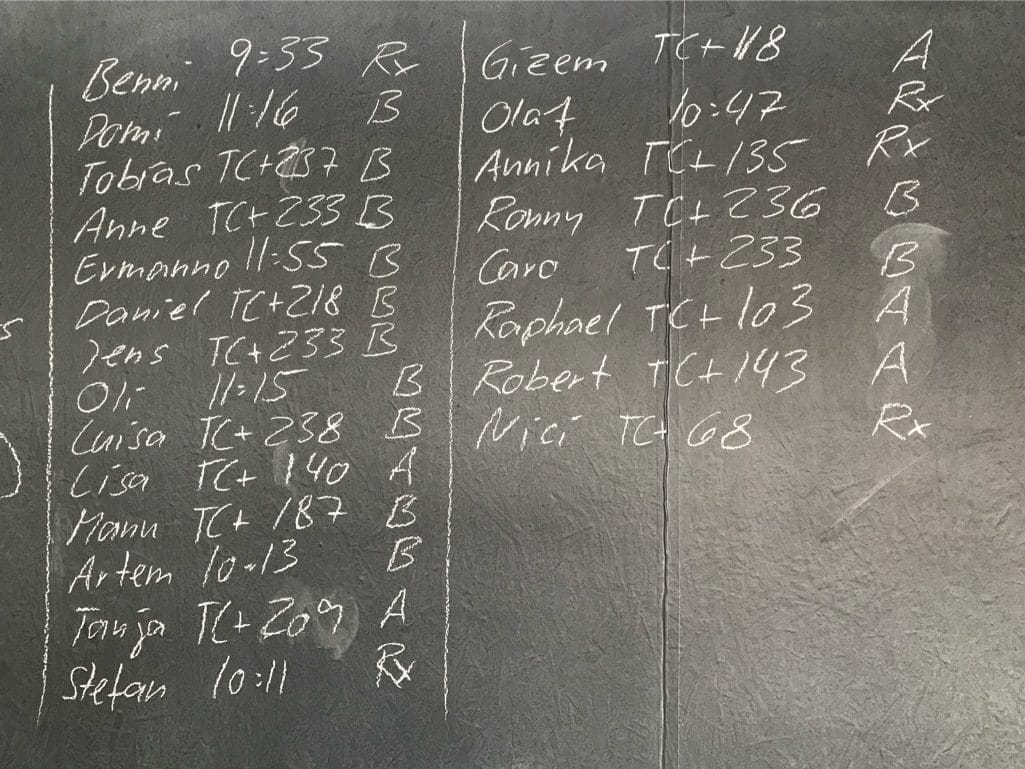 Benni 9:33 Rx
Domi 11:16 B
Tobias TC+237 B
Anne TC+ 233 B
Ermanno 11:55 B
Daniel TC+218 B
Jens TC+233 B
Oli 11:15 B
Luisa TC+ 238 B
Lisa TC+ 140 A
Manu TC+ 187 B
Artem 10:13 B
Tanja TC+ 209 A
Stefan 10:11 Rx
Gizem TC+ 118 A
Olaf 10:47 Rx
Annika TC+ 135 Rx
Ronny TC+ 236 B
Caro TC+ 233 B
Raphael TC+ 103 A
Robert TC+ 143 A
Nici TC+ 68 Rx